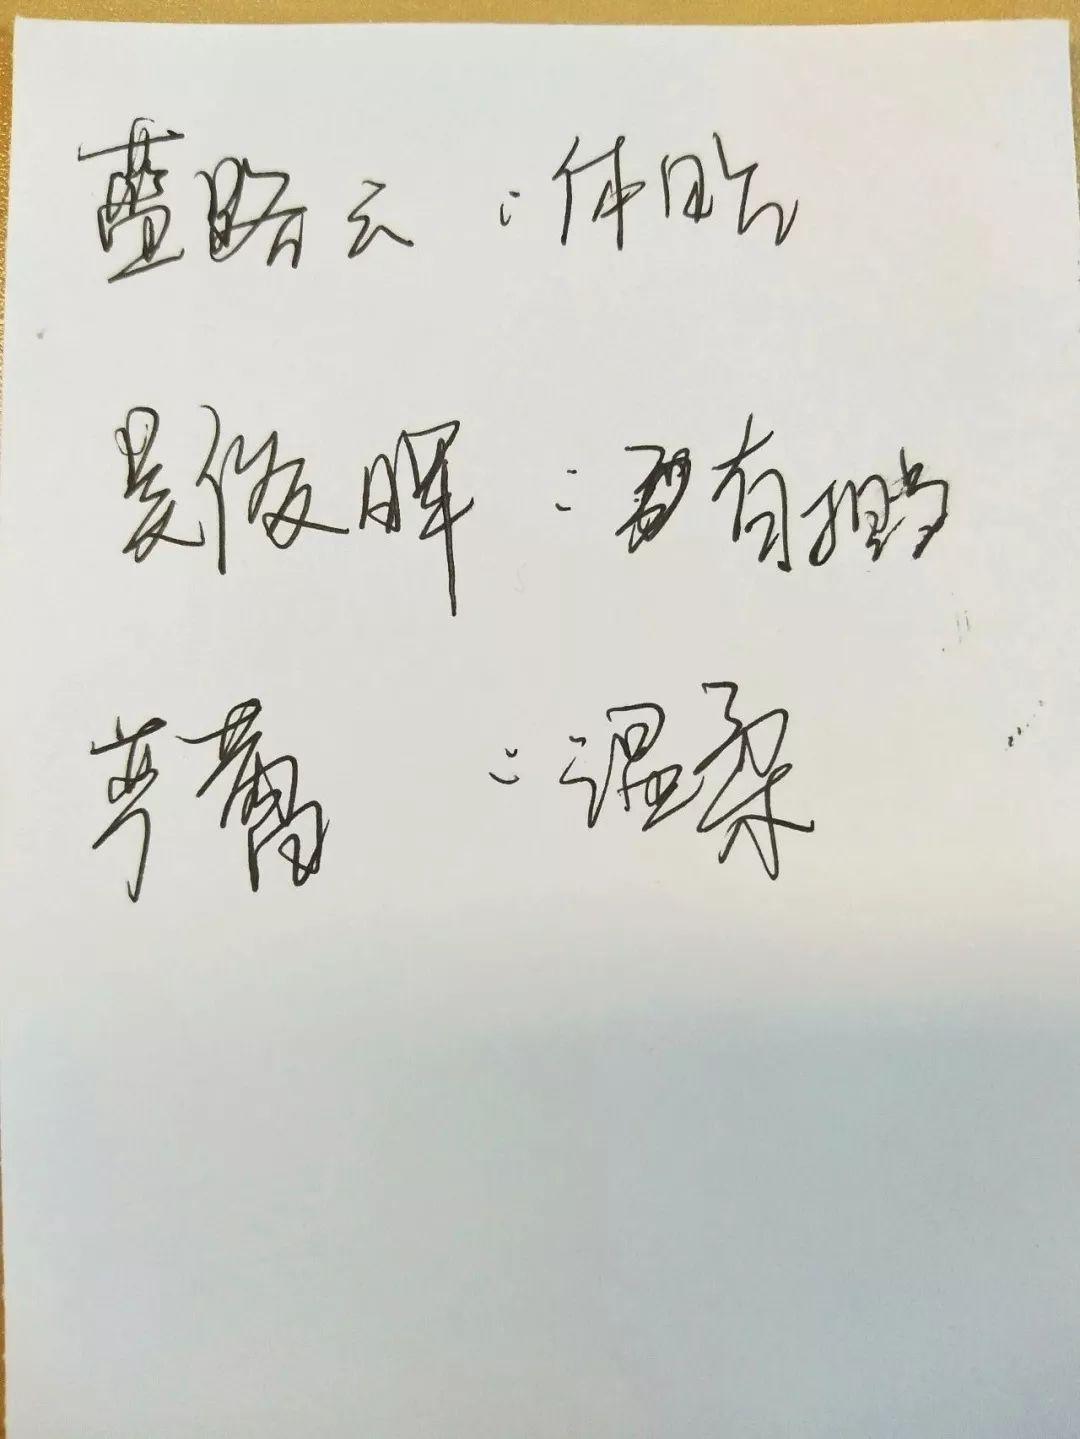 蓝路云：体贴
吴俊晖：有担当
芳菁：温柔